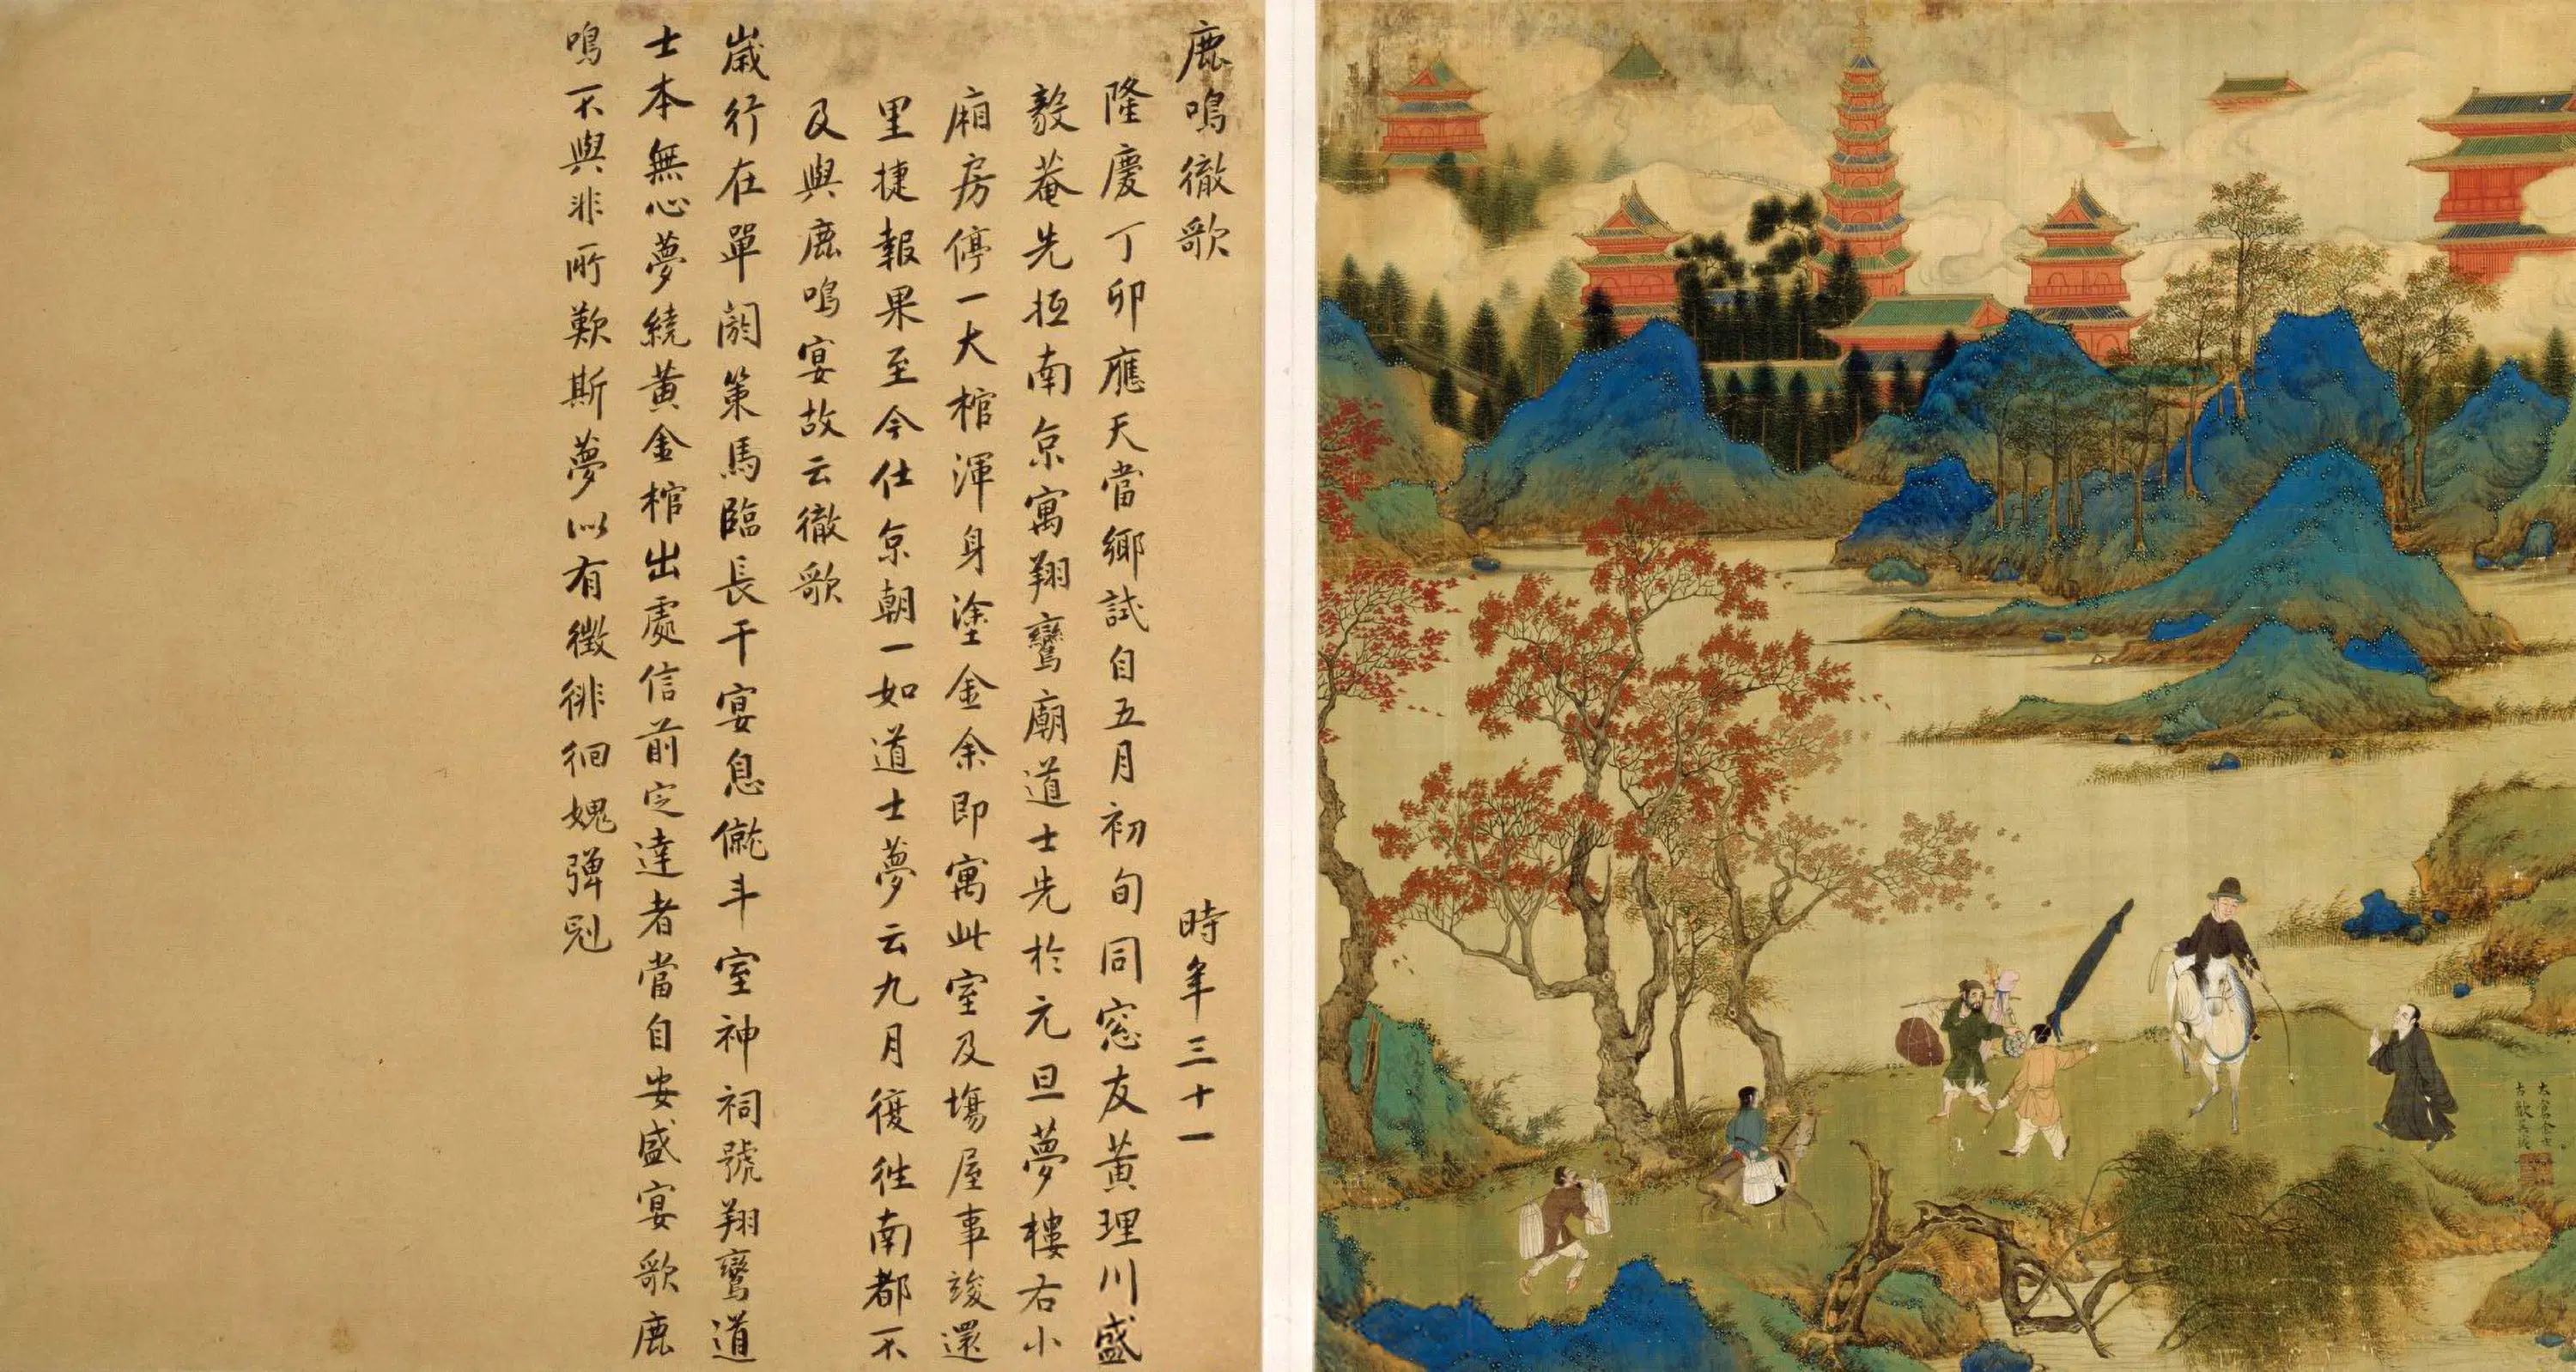 鹿鳴徹歌 時年三十一
隆慶丁卯應天當鄉試自五月初旬同窓友黃理川盛
毅菴先抵南京寓翔鸞廟道士先於元旦夢樓右小
廂房停一大棺渾身塗金余即寓此室及塲屋事竣還
里捷報果至今仕京朝一如道士夢云九月復往南都不
及與鹿鳴宴故云徹歌
歲行在單閼策馬臨長干宴息僦斗室神祠號翔鸞道
士本無心夢繞黃金棺出處信前定達者當自安盛宴歌鹿
鳴不與非所歎斯夢似有徵徘徊媿彈冠
太倉金士
古歙吳